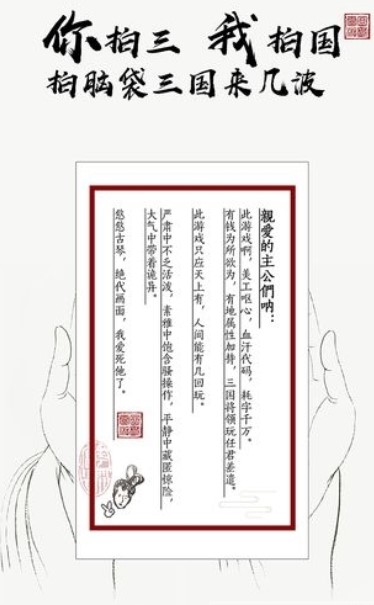 你拍三 我拍国
拍脑袋三国来几波
親爱的主公們呐：
此游戏啊，美工呕心，血汗代码，耗字千万。
有钱为所欲为，有地属性加持，三国将领玩任君差遣。
此游戏只应天上有，人间能有几回玩。
严肃中不乏活泼，素雅中饱含骚操作，平静中藏匿惊险，
大气中带着诡异。
悠悠古琴，绝代画面，我爱死他了。